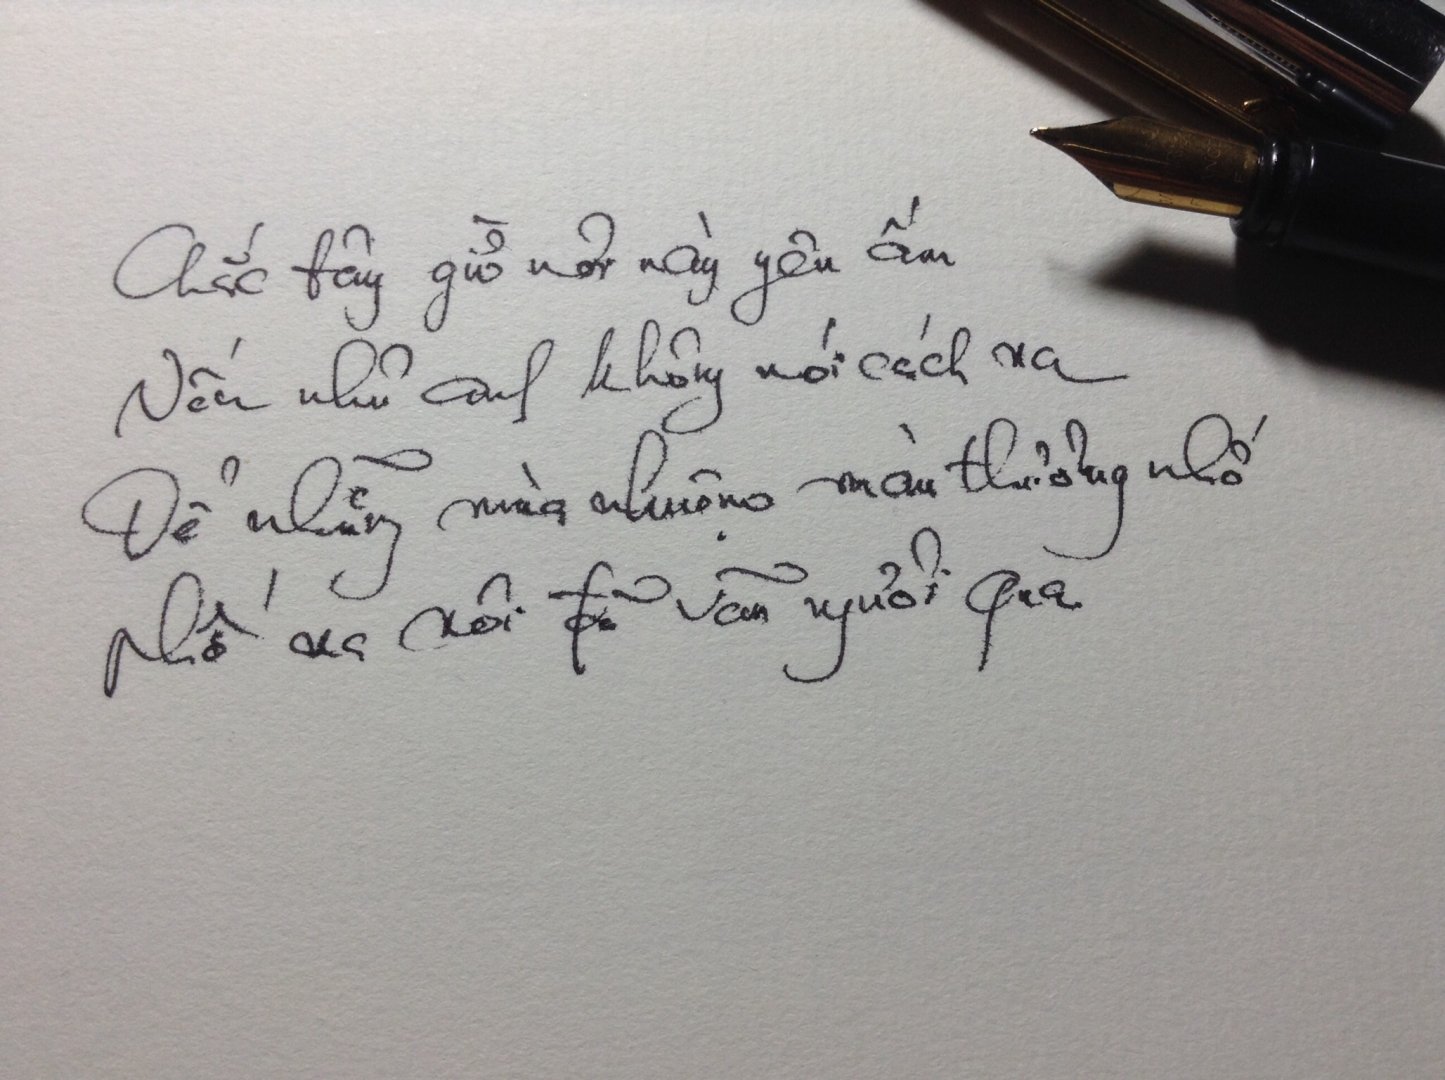 Chắc bây giờ nơi này yên ấm
Nếu như anh không nói cách xa
Để những mùa nhuộm màu thương nhớ
Phố xa xôi đã vãn người qua